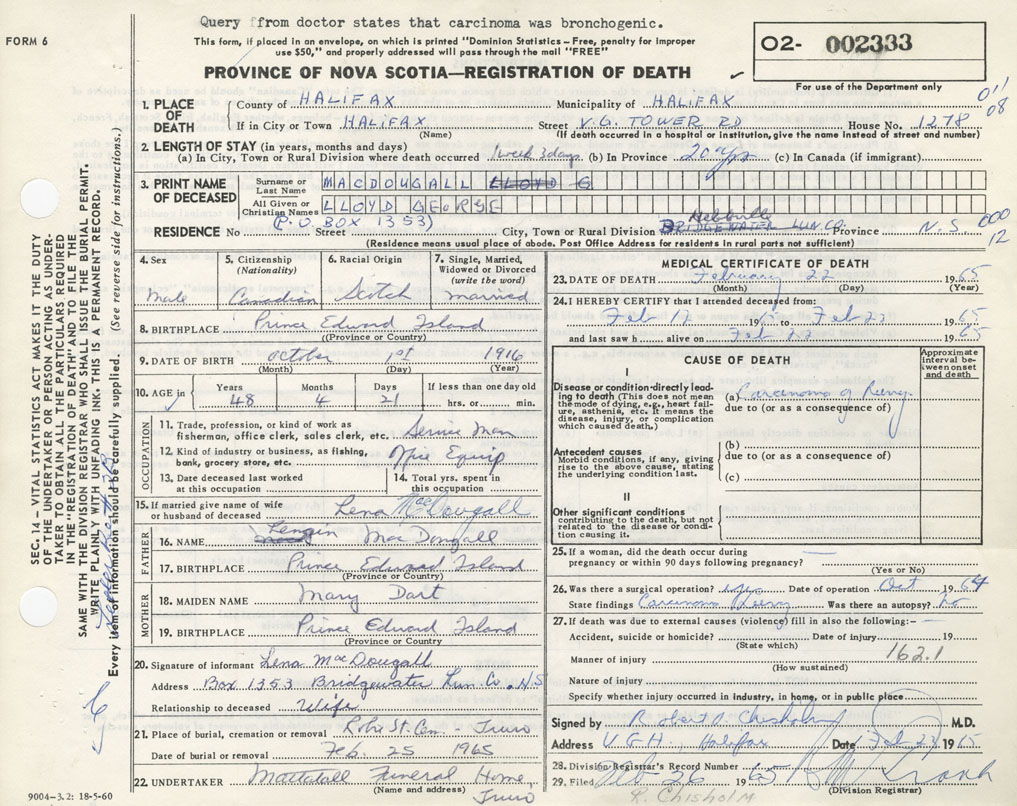 Query from doctor states that carcinoma was bronchogenic.
FORM 6
This form, if placed in an envelope, on which is printed "Dominion Statistics - Free, penalty for improper
use $50," and properly addressed will pass through the mail "FREE"
02- 002333
For use of the Department only
PROVINCE OF NOVA SCOTIA—REGISTRATION OF DEATH
011
08
1. PLACE OF DEATH
County of HALIFAX Municipality of HALIFAX
If in City or Town HALIFAX Street V.G. TOWER RD House No. 1278
(Name) (If death occurred in a hospital or institution, give the name instead of street and number)
2. LENGTH OF STAY (in years, months and days)
(a) In City, Town or Rural Division where death occurred 1 week 3 days (b) In Province 20 yrs (c) In Canada (if immigrant)
3. PRINT NAME OF DECEASED
Surname or Last Name MACDOUGALL LLOYD G
All Given or Christian Names LLOYD GEORGE
(P.O BOX 1353)
RESIDENCE No Street City, Town or Rural Division BRIDGEWATER Hebbville LUN. CO Province N.S.
000
12
(Residence means usual place of abode. Post Office Address for residents in rural parts not sufficient)
4. Sex
Male
5. Citizenship
(Nationality)
Canadian
6. Racial Origin
Scotch
7. Single, Married,
Widowed or Divorced
(write the word)
Married
8. BIRTHPLACE Prince Edward Island
(Province or Country)
9. DATE OF BIRTH October 1st 1916
(Month) (Day) (Year)
10. AGE in
Years Months Days If less than one day old
48 4 21 hrs. or min.
OCCUPATION
11. Trade, profession, or kind of work as
fisherman, office clerk, sales clerk, etc. Service Man
12. Kind of industry or business, as fishing,
bank, grocery store, etc. Equip
13. Date deceased last worked
at this occupation
14. Total yrs. spent in
this occupation
15. If married give name of wife
or husband of deceased Lena MacDougall
FATHER
16. NAME MacDougall
17. BIRTHPLACE Prince Edward Island
(Province or Country)
MOTHER
18. MAIDEN NAME Mary Dart
19. BIRTHPLACE Prince Edward Island
(Province or Country)
20. Signature of informant Lena MacDougall
Address Box 1353 Bridgewater Lun. Co. N.S
Relationship to deceased Wife
21. Place of burial, cremation or removal St. Cem - Truro
Date of burial or removal Feb. 25 1965
22. UNDERTAKER Mattatall Funeral Home
(Name and address)
Truro
9004-3.2: 18-5-60
MEDICAL CERTIFICATE OF DEATH
23. DATE OF DEATH February 22 1965
(Month) (Day) (Year)
24. I HEREBY CERTIFY that I attended deceased from:
Feb 12 1965 Feb 22 1965
and last saw h alive on Feb 22 1965
CAUSE OF DEATH
Approximate
interval be-
tween onset
and death
I
Disease or condition directly lead-
ing to death (This does not mean
the mode of dying, e.g., heart fail-
ure, asthenia, etc. It means the
disease, injury, or complication
which caused death.)
(a) Carcinoma of Lung
due to (or as a consequence of)
Antecedent causes
Morbid conditions, if any, giving
rise to the above cause, stating
the underlying condition last.
(b)
due to (or as a consequence of)
(c)
II
Other significant conditions
contributing to the death, but not
related to the disease or condi-
tion causing it.
25. If a woman, did the death occur during
pregnancy or within 90 days following pregnancy?
(Yes or No)
26. Was there a surgical operation? yes Date of operation Oct 1964
State findings Carcinoma Lung Was there an autopsy? no
27. If death was due to external causes (violence) fill in also the following:—
Accident, suicide or homicide? Date of injury 19
(State which)
162.1
Manner of injury
(How sustained)
Nature of injury
Specify whether injury occurred in industry, in home, or in public place
Signed by Robert A. Chisholm M.D.
Address V.G.H., Halifax Date Feb 1965
28. Division Registrar's Record Number
29. Filed Feb 26 1965
(Division Registrar)
R. Chisholm
SEC. 14 — VITAL STATISTICS ACT MAKES IT THE DUTY
OF THE UNDERTAKER OR PERSON ACTING AS UNDER-
TAKER TO OBTAIN ALL THE PARTICULARS REQUIRED
IN THE "REGISTRATION OF DEATH" AND TO FILE THE
SAME WITH THE DIVISION REGISTRAR WHO SHALL ISSUE THE BURIAL PERMIT.
WRITE PLAINLY WITH UNFADING INK—THIS IS A PERMANENT RECORD.
Every item of information should be carefully supplied. (See reverse side for instructions.)